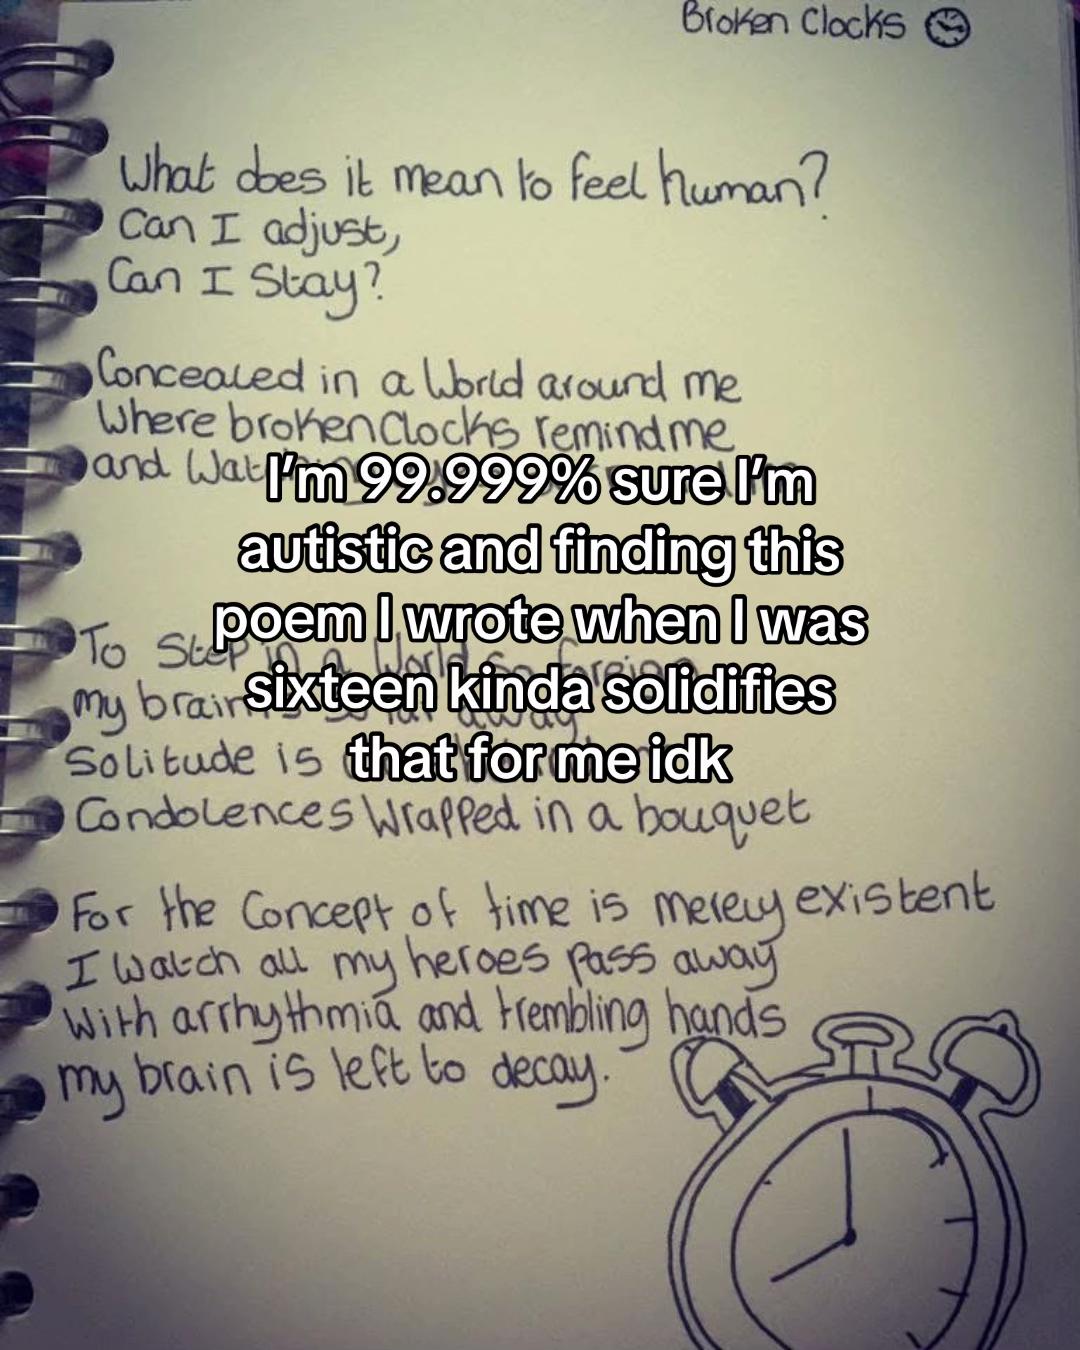 Broken Clocks
What does it mean to feel human?
Can I adjust,
Can I Stay?
Concealed in a World around me
Where broken Clocks remind me
and
I’m 99.999% sure I’m
autistic and finding this
poem I wrote when I was
sixteen kinda solidifies
that for me idk
To Step in a World so foreign
my brain is so far away
Solitude is
Condolences Wrapped in a bouquet
For the Concept of time is merely existent
I Watch all my heroes pass away
With arrhythmia and trembling hands
my brain is left to decay.